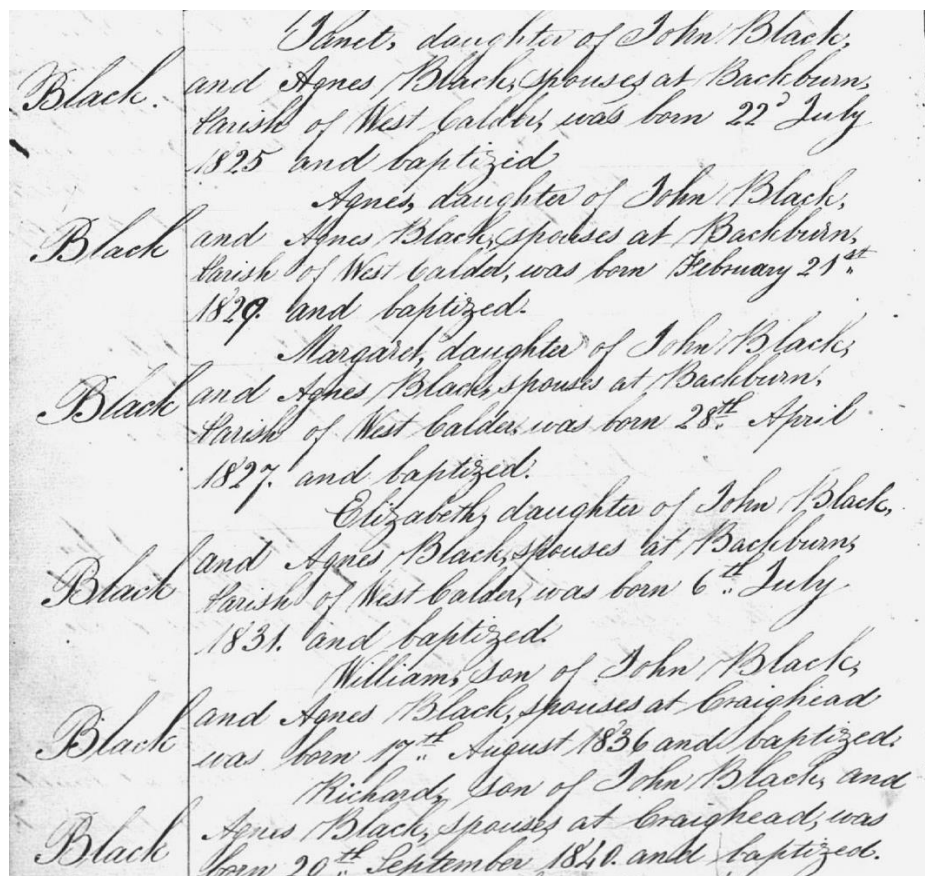 Janet, daughter of John Black,
Black. and Agnes Black, spouses at Backburn,
Parish of West Calder, was born 22d July
1825 and baptized
Agnes, daughter of John Black,
Black and Agnes Black, spouses at Backburn,
Parish of West Calder, was born February 21st
1829. and baptized.
Margaret, daughter of John Black,
Black and Agnes Black, spouses at Backburn,
Parish of West Calder was born 28th April
1827. and baptized.
Elizabeth, daughter of John Black,
Black and Agnes Black, spouses at Backburn,
Parish of West Calder, was born 6th July
1831. and baptized.
William, son of John Black,
Black and Agnes Black, spouses at Craighead
was born 17th August 1836 and baptized.
Richard, son of John Black, and
Black Agnes Black, spouses at Craighead, was
born 20th September 1840. and baptized.